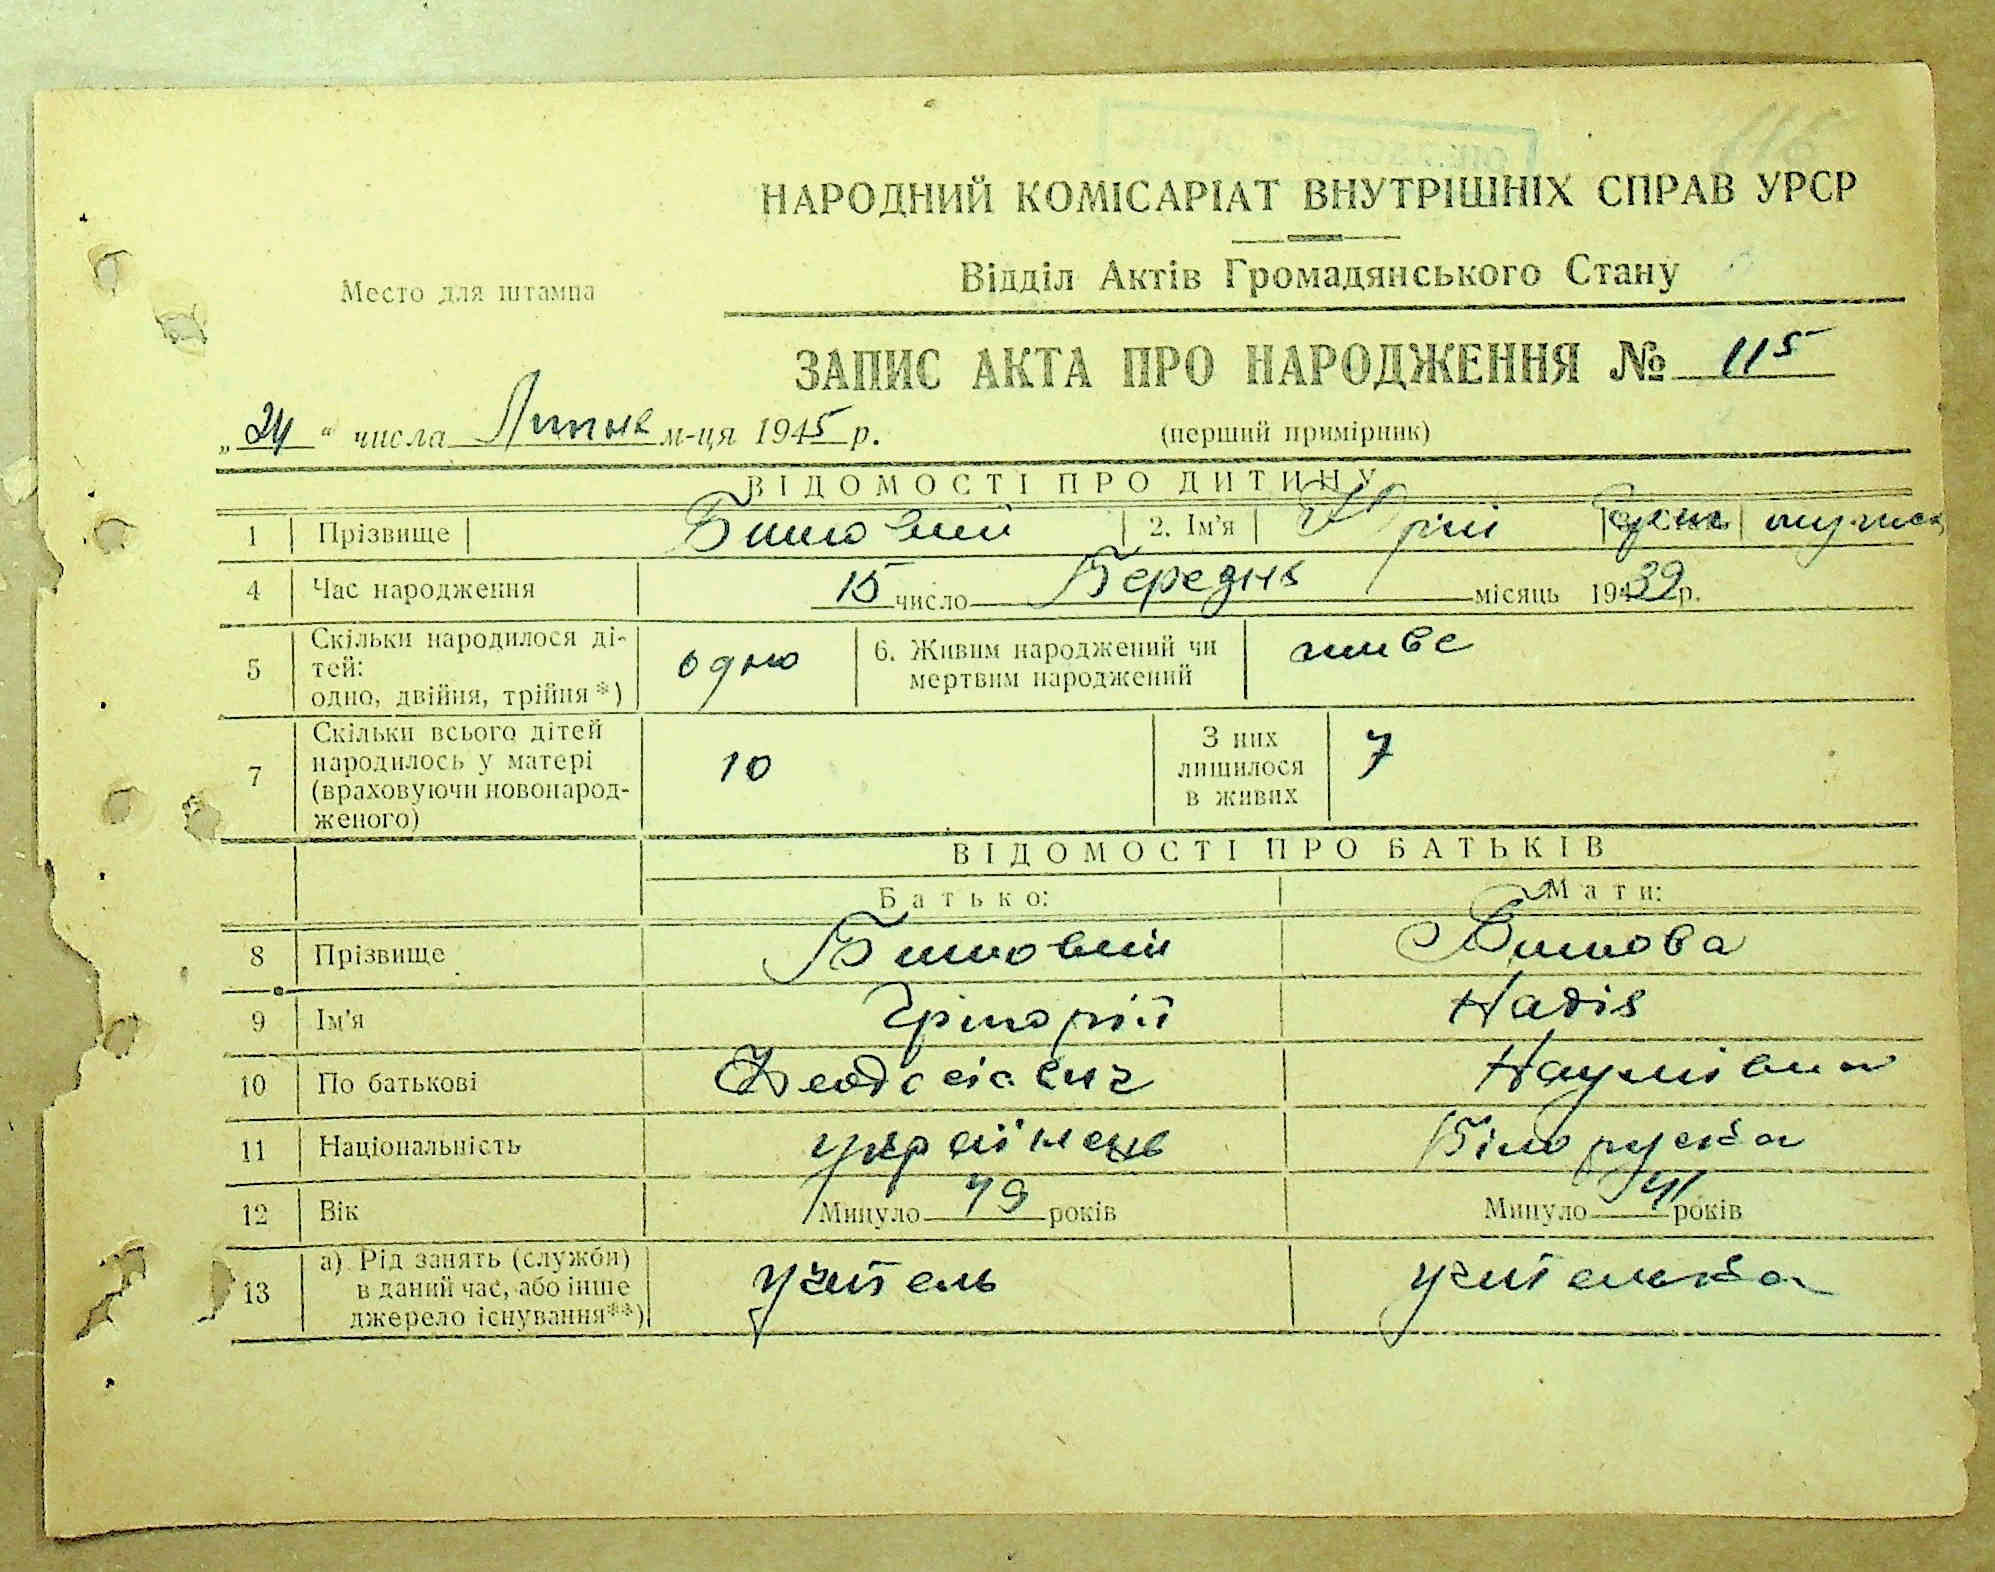 НАРОДНИЙ КОМІСАРІАТ ВНУТРІШНІХ СПРАВ УРСР
Відділ Актів Громадянського Стану
Место для штампа
ЗАПИС АКТА ПРО НАРОДЖЕННЯ № 115
„24“ числа Липня м-ця 1945 р. (перший примірник)
ВІДОМОСТІ ПРО ДИТИНУ
1 Прізвище 2. Ім'я Юрій
4 Час народження 15 число Березня місяць 1939 р.
5 Скільки народилося ді-
тей:
одно, двійня, трійня*) одно 6. Живим народжений чи
мертвим народжений живе
7 Скільки всього дітей
народилось у матері
(враховуючи новонарод-
женого) 10 З них
лишилося
в живих 7
ВІДОМОСТІ ПРО БАТЬКІВ
Батько: Мати:
8 Прізвище
9 Ім'я Григорій Надія
10 По батькові Феодосієвич Наумівна
11 Національність українець Білоруска
12 Вік Минуло 49 років Минуло 41 років
13 а) Рід занять (служби)
в даний час, або інше
джерело існування**) Учитель учителька